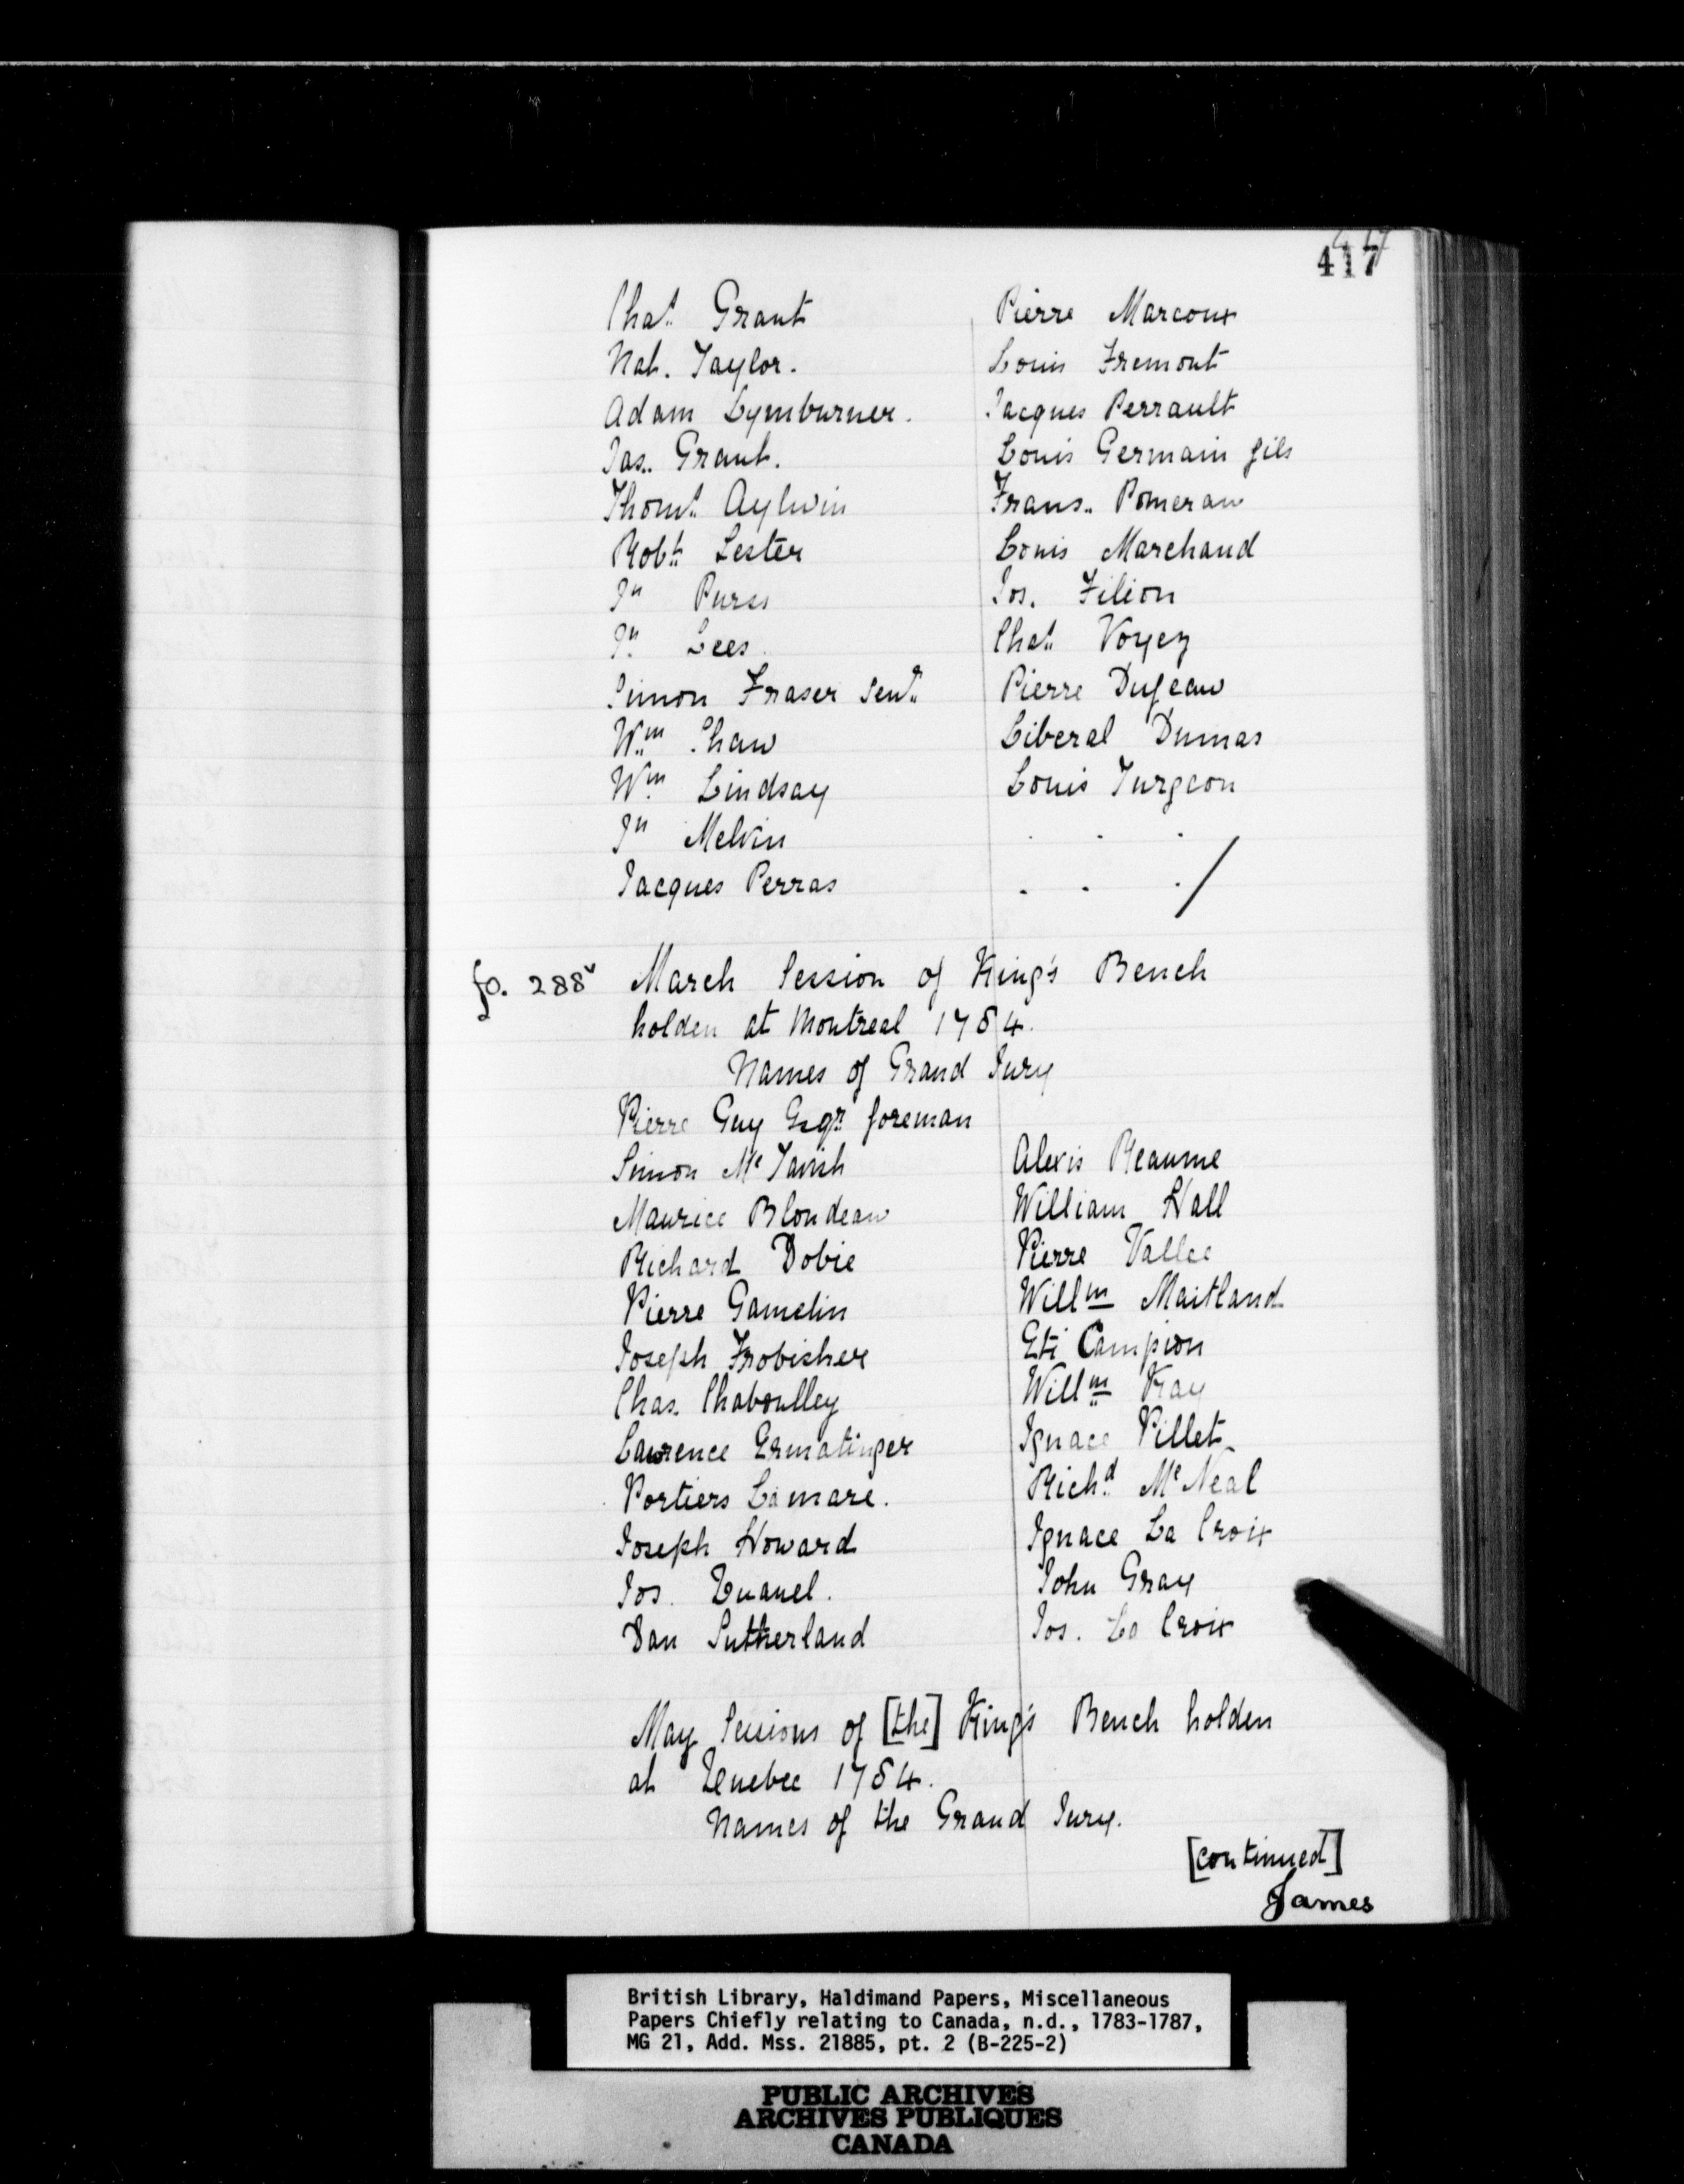 417
Chas. Grant Pierre Marcoux
Nat. Taylor. Louis Fremont
Adam Lymburner. Jacques Perrault
Jas. Grant. Louis Germain fils
Thoms. Aylwin Frans. Pomerau
Robt. Lester Louis Marchand
Jn Purss Jos. Filion
Jn. Lees. Chas. Voyez
Simon Fraser Senr. Pierre Dufeau
Wm. Shaw Liberal Dumas
Wm. Lindsay Louis Turgeon
Jn Melvin . . .
Jacques Perras . . . /
fo. 288v March Session of King's Bench
holden at Montreal 1784.
Names of Grand Jury
Pierre Guy Esqr. foreman
Simon Mc Tavish Alexis Reaume
Maurice Blondeau William Hall
Richard Dobie Pierre Vallee
Pierre Gamelin Willm Maitland
Joseph Frobisher Eti Campion
Chas. Chaboulley Willm Kay
Lawrence Ermatinger Ignace Pillet
Portiers Lamare. Richd. Mc Neal
Joseph Howard Ignace La Croix
Jos. John Gray
Dan Sutherland Jos. La Croix
May Sessions of [the] King's Bench holden
at Quebec 1784.
Names of the Grand Jury.
[continued]
James
British Library, Haldimand Papers, Miscellaneous
Papers Chiefly relating to Canada, n.d., 1783-1787,
MG 21, Add. Mss. 21885, pt. 2 (B-225-2)
PUBLIC ARCHIVES
ARCHIVES PUBLIQUES
CANADA